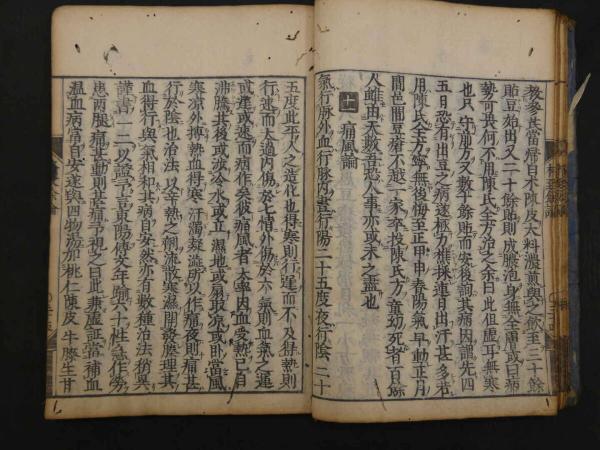 教多與當歸白朮陳皮大料濃煎與之飲至三十餘
貼豆始出又二十餘貼則成膿泡身無全膚或曰病
勢可畏何不用陳氏全方治之余曰此但虛耳無寒
也只守前方又數十餘貼而安後詢其病因謂先四
五日恐有出豆之病遂極力樵採連日出汗甚多若
用陳氏全方寧無後悔至正甲申春陽氣早動正月
間邑間豆瘡不越一家卒投陳氏方童幼死者百餘
人雖由天數吾恐人事亦或未之盡也
十一 痛風論
氣行脈外血行脈內晝行陽二十五度夜行陰二十
五度此平人之造化也得寒則行遲而不及得熱則
行速而太過內傷於七情外傷於六氣則血氣之運
或遲或速而病作矣彼痛風者大率因血受熱已自
沸騰其後或涉冷水或立濕地或扇取凉或臥當風
寒凉外搏熱血得寒汙濁凝澁所以作痛夜則痛甚
行於陰也治法以辛熱之劑流散寒濕開發腠理其
血得行與氣相和其病自安然亦有數種治法稍異
謹書一二以證予言東陽傅文年踰六十性急作勞
患兩腿痛甚動則甚痛予視之曰此兼虛證當補血
溫血病當自安遂與四物湯加桃仁陳皮牛膝生甘